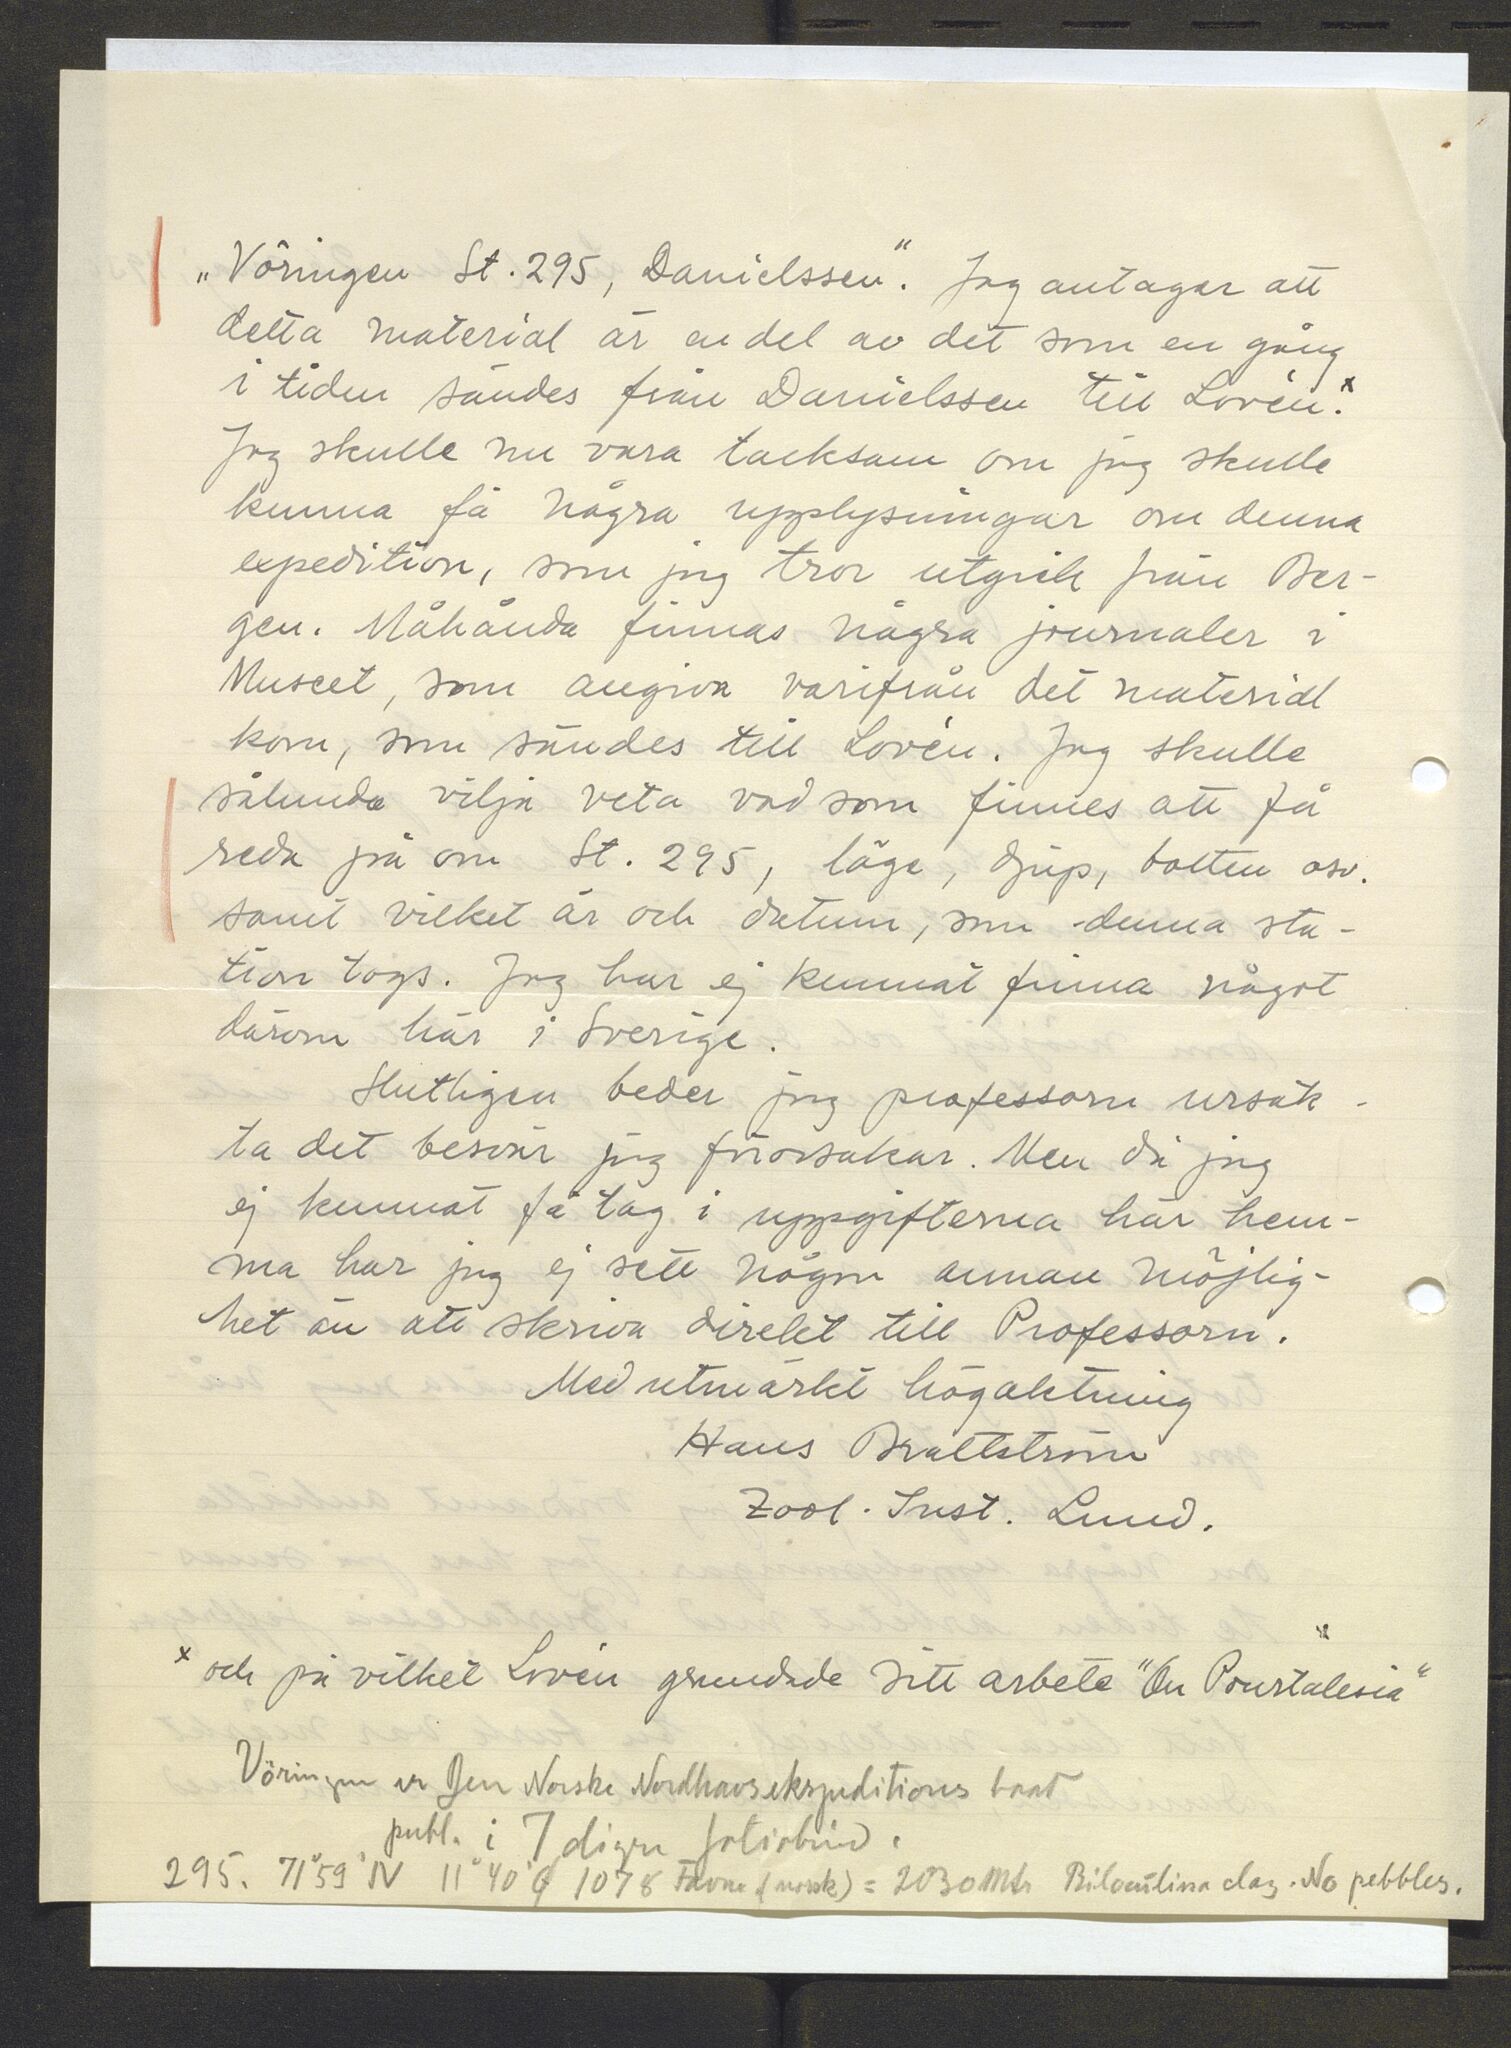 „Vöringen St. 295, Danielssen“. Jag antager att
detta material är en del av det som en gång
i tiden sändes från Danielssen till Lovén.x
Jag skulle nu vara tacksam om jag skulle
kunna få några upplysningar om denna
expedition, som jag tror utgick från Ber-
gen. Måhända finnas några journaler i
Museet, som angiva varifrån det material
kom, som sändes till Lovén. Jag skulle
sålunda vilja veta vad som finnes att få
reda på om St. 295, läge, djup, botten osv.
samt vilket år och datum, som denna sta-
tion togs. Jag har ej kunnat finna något
därom här i Sverige.
Slutligen beder jag professorn ursäk-
ta det besvär jag förorsakar. Men då jag
ej kunnat få tag i uppgifterna här hem-
ma har jag ej sett någon annan möjlig-
het än att skriva direkt till Professorn.
Med utmärkt högaktning
Hans Brattström
Zool. Inst. Lund.
x och på vilket Lovén grundade sitt arbete "On Pourtalesia“
Vöringen er Den Norske Nordhavsekspeditions baat
publ. i 7 digre foliobind.
295. 71°59' N 11°40' Ø 1078 Favne (norsk) = 2030 Mtr Biloculina clay. No pebbles.